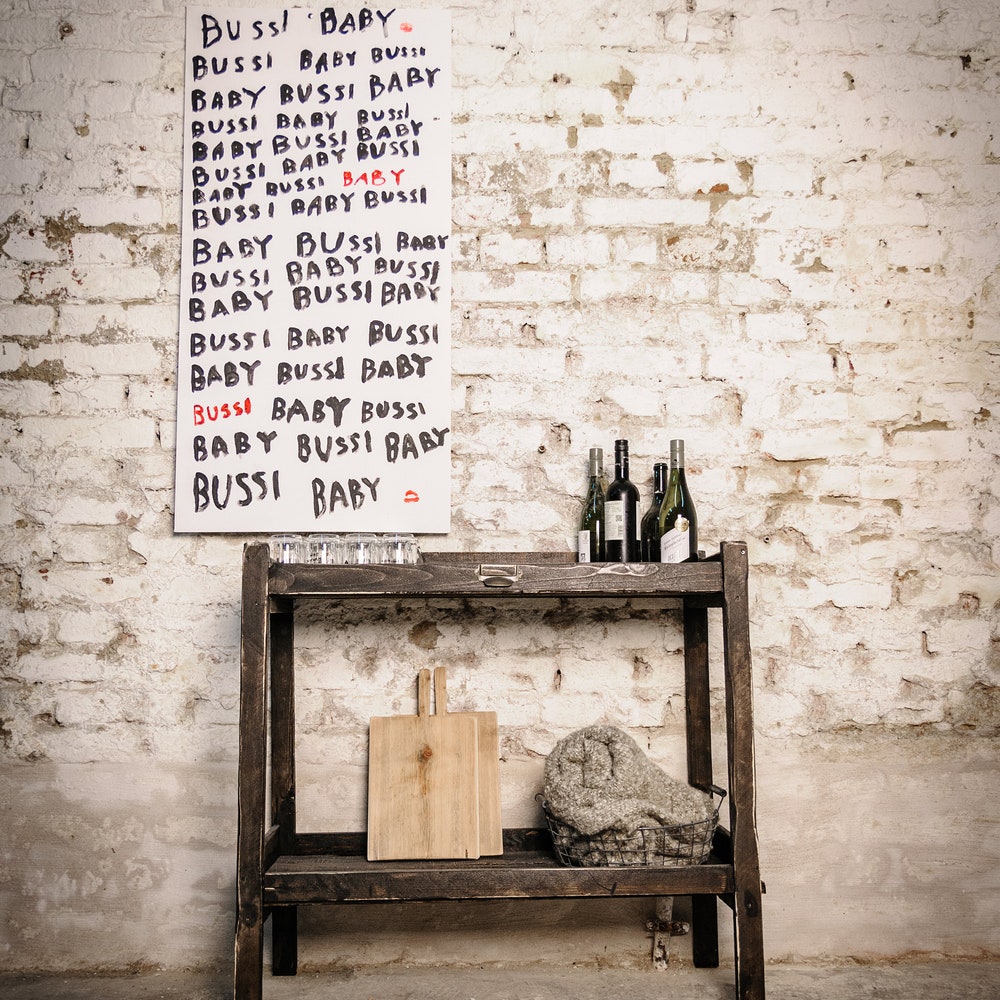 BUSSI BABY
BUSSI BABY BUSSI
BABY BUSSI BABY
BUSSI BABY BUSSI
BABY BUSSI BABY
BUSSI BABY BUSSI
BABY BUSSI BABY
BUSSI BABY BUSSI
BABY BUSSI BABY
BUSSI BABY BUSSI
BABY BUSSI BABY
BUSSI BABY BUSSI
BABY BUSSI BABY
BUSSI BABY BUSSI
BABY BUSSI BABY
BUSSI BABY